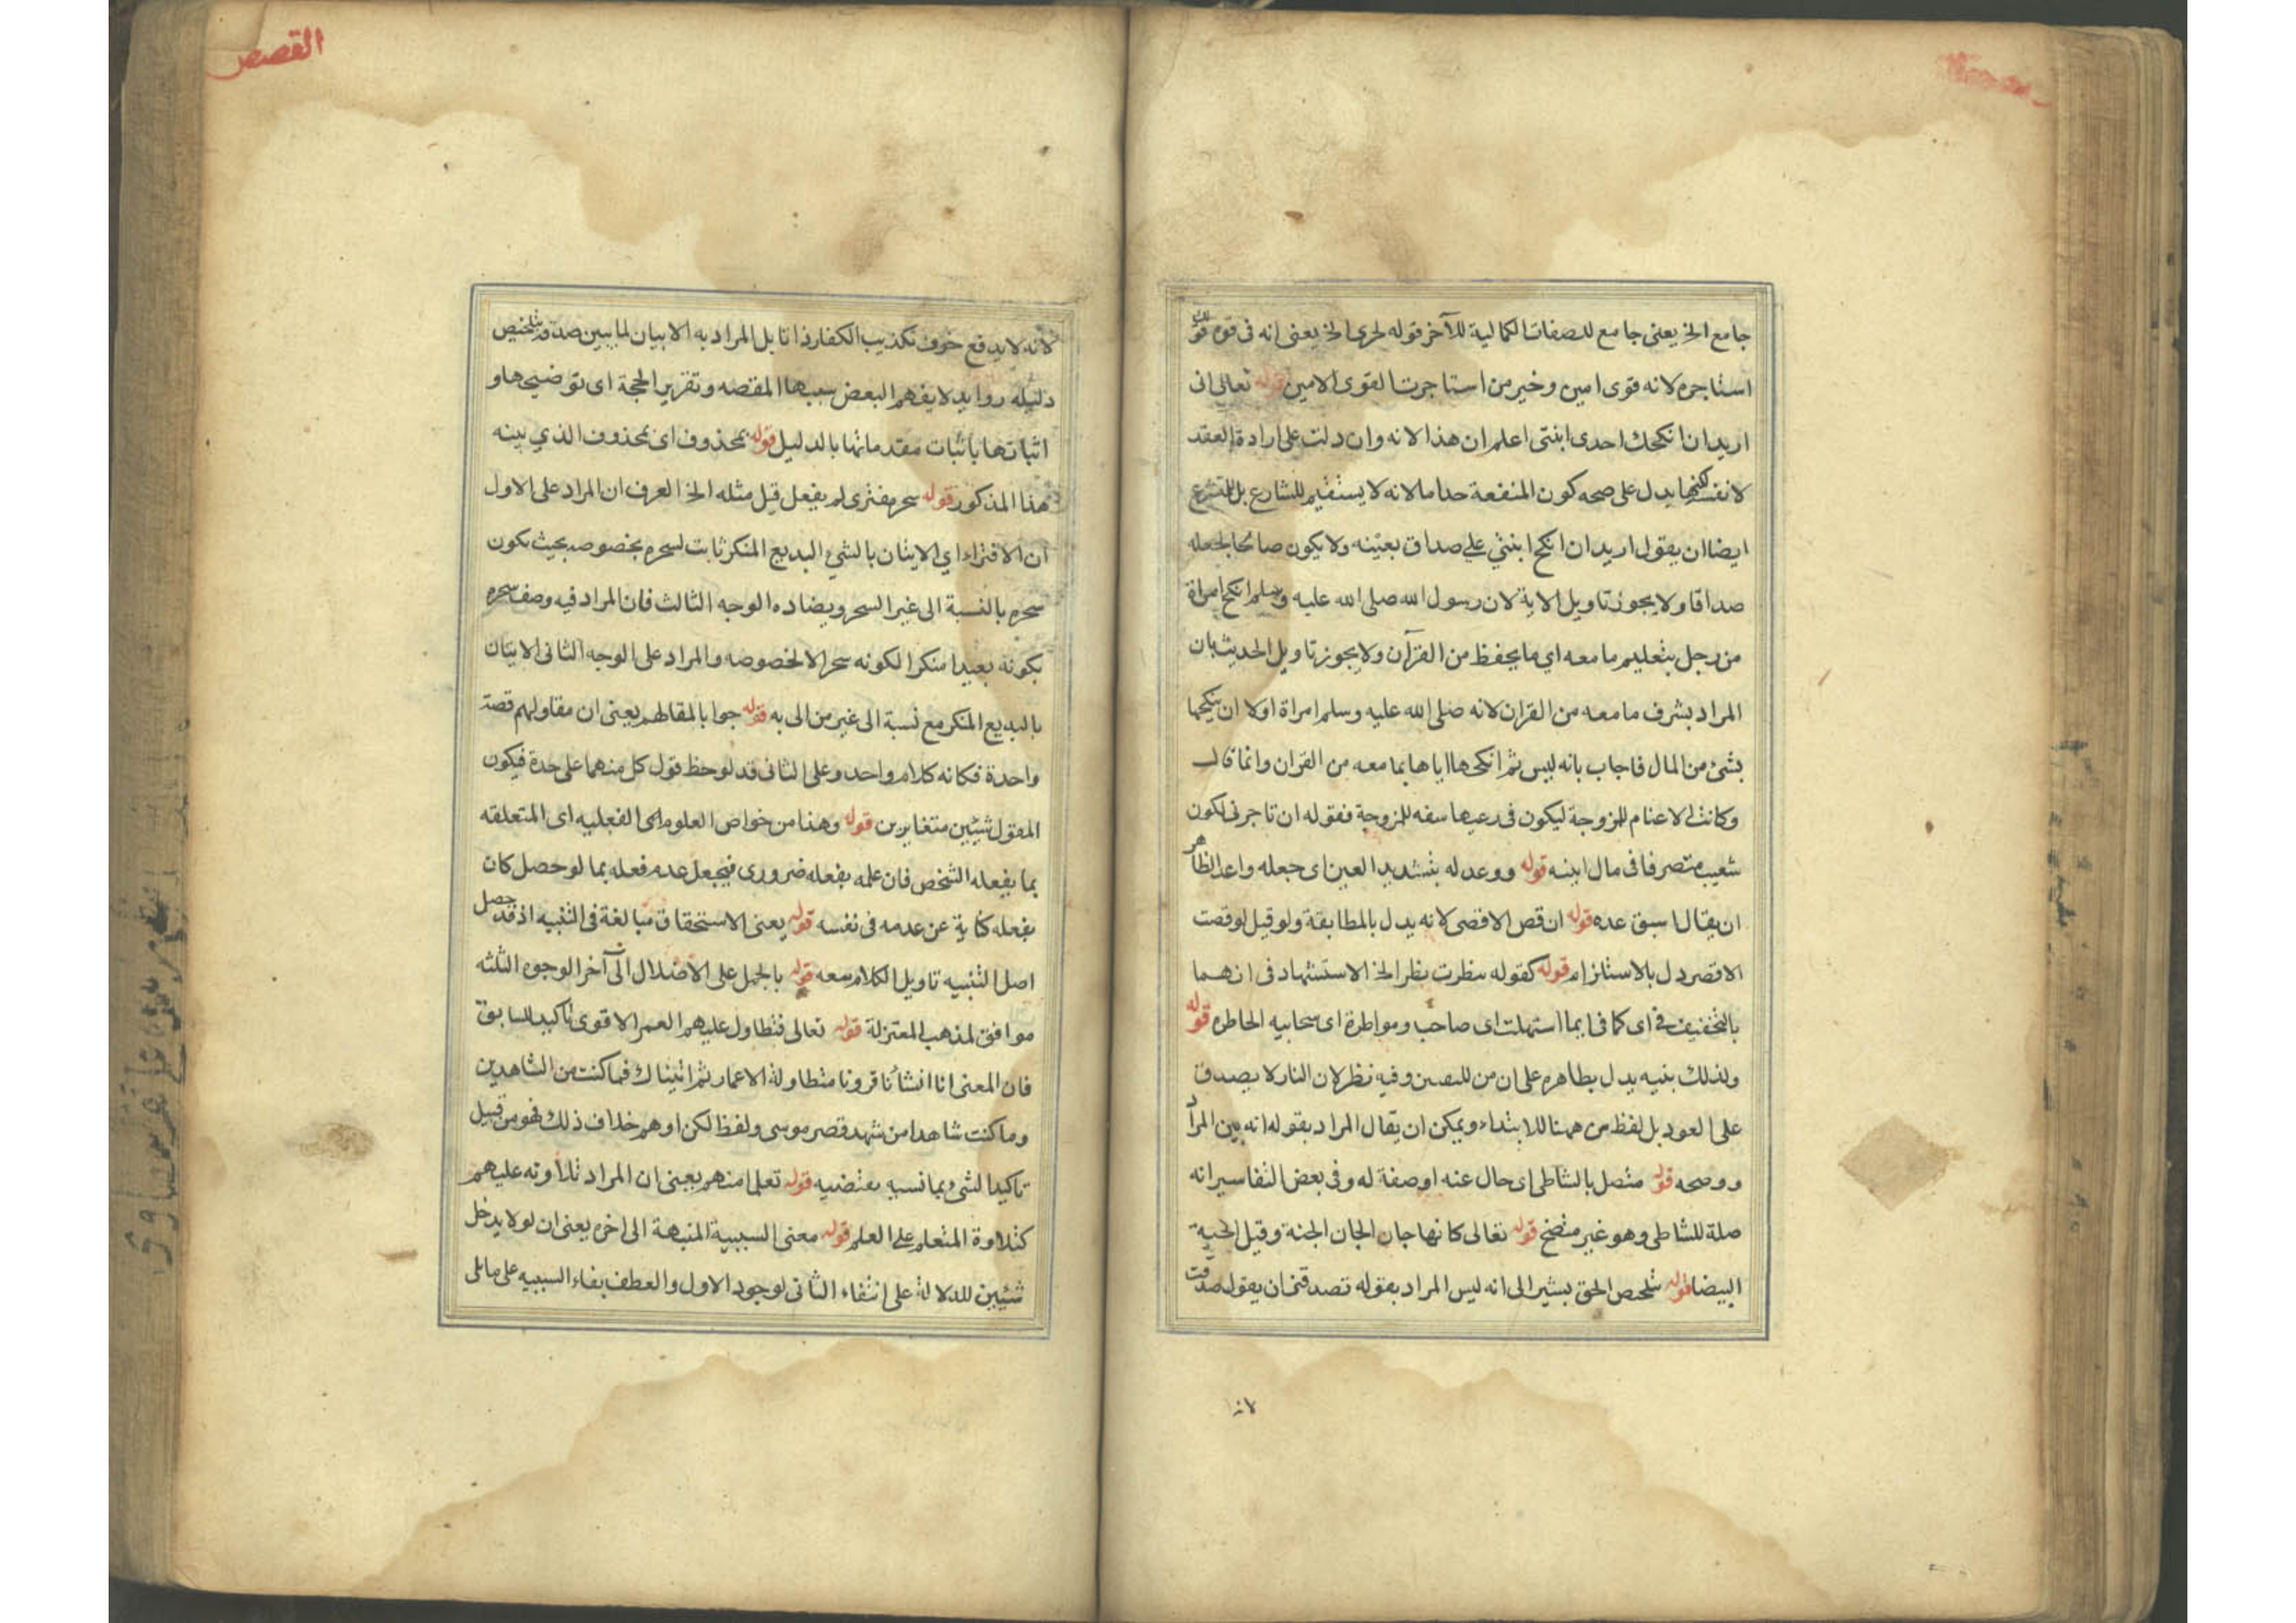 جامع الخ يعنى جامع للصفات الكمالية للآخر قوله لحرى الخ يعنى انه فى قوة قولك
استاجره لانه قوى امين وخير من استاجرت القوى الامين قوله تعالى انى
اريد ان انكحك احدى ابنتى اعلم ان هذا لانه وان دلت على ارادة العقد
لا نفسه لكنها يدل على صحه كون المنفعة لانه لا يستقيم للشارع بل للمتشرع
ايضا ان يقول اريد ان انكح ابنتي على صداق بعينه ولا يكون صالحا لجعله
صداقا ولا يجوز تاويل الاية لان رسول الله صلى الله عليه وسلم انكح امراة
من رجل بتعليم ما معه اي ما يحفظ من القرآن ولا يجوز تاويل الحديث بان
المراد بشرف ما معه من القران لانه صلى الله عليه وسلم امراة اولا ان ينكحها
بشئ من المال فاجاب بانه ليس ثم انكحها اياها بما معه من القران وانما قال
وكانت الاغنام للزوجة ليكون فى رعيها سفه للزوجة فقوله ان تاجرنى لكون
شعيب متصرفا فى مال ابنته قوله ووعد له بتشديد العين اى جعله واعد الظاهر
ان يقال لما سبق عده قوله ان قص الاقصى لانه يدل بالمطابقة ولو قيل لو قصت
الاقصر دل بالاستلزام قوله كقوله نظرت نظر الخ الاستشهاد فى انهما
بالتخفيف فى اى كما فى ايما استهلت اى صاحب ومواطرة اى سحابيه الحاطره قوله
ولذلك بنيه يدل بظاهره على ان من للتبيين وفيه نظر لان النار لا يصدق
على العود بل لفظ من ههنا للابتداء ويمكن ان يقال المراد بقوله انه بين المراد
ووضحه قوله متصل بالشاطى اى حال عنه او صفة له وفى بعض التفاسير انه
صلة للشاطى وهو غير متضح قوله تعالى كانها جان الجان الجنة وقيل الحية
البيضا قوله تلخص الحق يشير الى انه ليس المراد بقوله تصدقنى ان يقول صدقت
لانه
القصص
لانه لا يدفع خوف تكذيب الكفار ذاتا بل المراد به الابيان لما يبين صدقه بتلخيص
دليله روايد لا يفهم البعض سببها المقصه وتقرير الحجة اى توضيحها و
اثباتها باثبات مقدماتها بالدليل قوله بمحذوف اى بمحذوف الذي بينه
هذا المذكور قوله سحر مفترى لم يفعل قبل مثله الخ العرف ان المراد على الاول
ان الافتراء اي الايتان بالشئ البديع المنكر ثابت لسحره بخصوصه بحيث تكون
سحره بالنسبة الى غير السحر ويضاده الوجه الثالث فان المراد فيه وصف سحره
بكونه بعيدا منكرا لكونه سحرا لا لخصوصه والمراد على الوجه الثانى الاتيان
بالبديع المنكر مع نسبة الى غير من اتى به قوله جوابا لمقالهم يعنى ان مقاولهم قصة
واحدة فكانه كلام واحد وعلى الثانى قد لوحظ قول كل منهما على حدة فيكون
المقول شيئين متغايرين قوله وهذا من خواص العلوم الفعليه اى المتعلقه
بما يفعله الشخص فان علمه بفعله ضرورى فيجعل عدم فعله بما لو حصل كان
بفعله كناية عن عدمه فى نفسه قوله يعنى الاستحقاق مبالغة فى التنبيه اذ قد حصل
اصل التنبيه تاويل الكلام معه قوله بالحمل على الاضلال الى آخر الوجوه الثلثه
موافق لمذهب المعتزلة قوله تعالى فتطاول عليهم العمر الاقوى تاكيد للسابق
فان المعنى انا انشأنا قرونا متطاولة الاعمار ثم اتيناك فما كنت من الشاهدين
وما كنت شاهدا من شهد قصر موسى ولفظ لكن اوهم خلاف ذلك فهو من قبيل
تاكيد الشئ بما نسبه بمقتضيه قوله تعلما منهم يعنى ان المراد تلاوته عليهم
كتلاوة المتعلم على العلم قوله معنى السببية المنبهة الى اخره يعنى ان لولا يدخل
شيئين للدلالة على انتفاء الثانى لوجود الاول والعطف بفاء السببيه على ما على